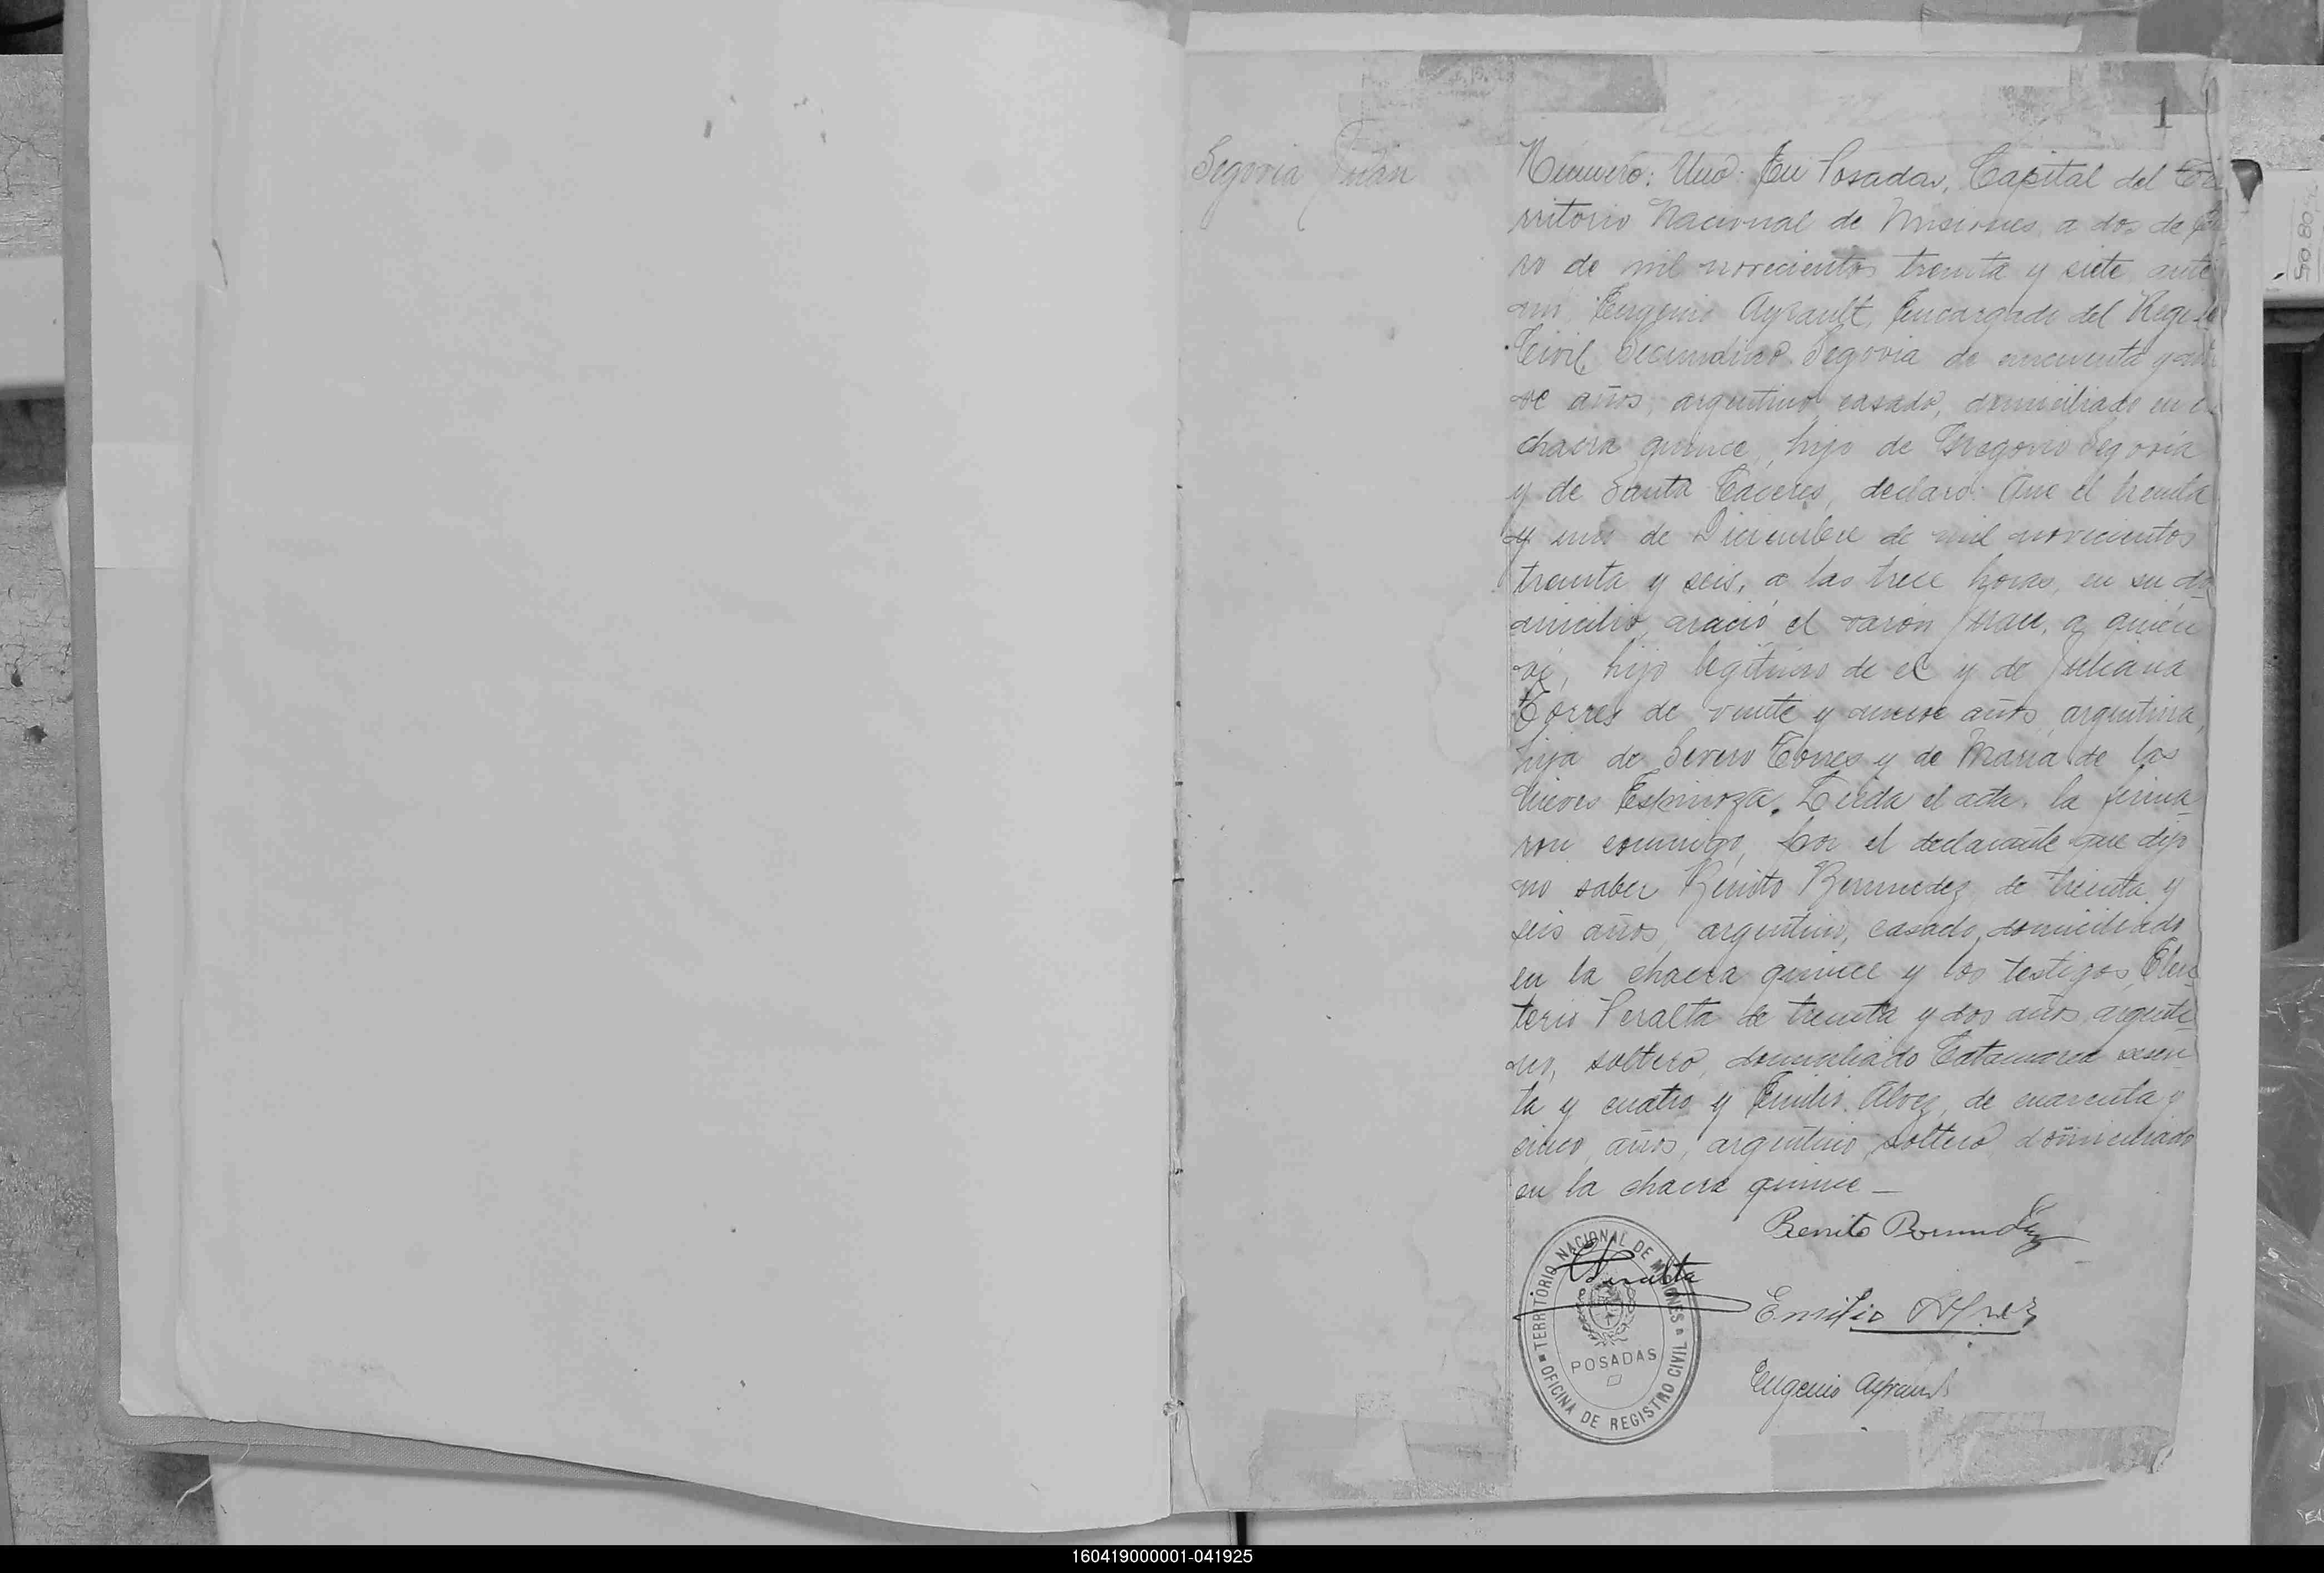 1
Segovia Juan
Número: Uno. En Posadas, Capital del Te
rritorio Nacional de Misiones, a dos de Ene
ro de mil novecientos treinta y siete, ante
mi, Eugenio Ayrault, Encargado del Registro
Civil, Secundino Segovia de cincuenta y
ve años, argentino, casado, domiciliado en
chacra quince, hijo de Gregorio Segovia
y de Santa Caceres, declaro: Que el treinta
y uno de Diciembre de mil novecientos
treinta y seis, a las trece horas, en su do
micilio, nació el varón Juan, a quien
vi, hijo legitimo de el y de Juliana
Torres de veinte y nueve años, argentina,
hija de Severo Torres y de Maria de las
Nieves Espinoza. Leida el acta, la firma-
ron conmigo, por el declarante que dijo
no saber Benito Bermudez de treinta y
seis años, argentino, casado, domiciliado
en la chacra quince y los testigos, Eleu-
terio Peralta de treinta y dos años, argenti-
no, soltero, domiciliado Catamarca sesen-
ta y cuatro y Emilio Alvez, de cuarenta y
cinco años, argentino, soltero, domiciliado
en la chacra quince —
Benito Bermudez
EPeralta
Emilio Alvez
Eugenio Ayrault
TERRITORIO NACIONAL DE MISIONES
POSADAS
OFICINA DE REGISTRO CIVIL
508 05
160419000001-041925